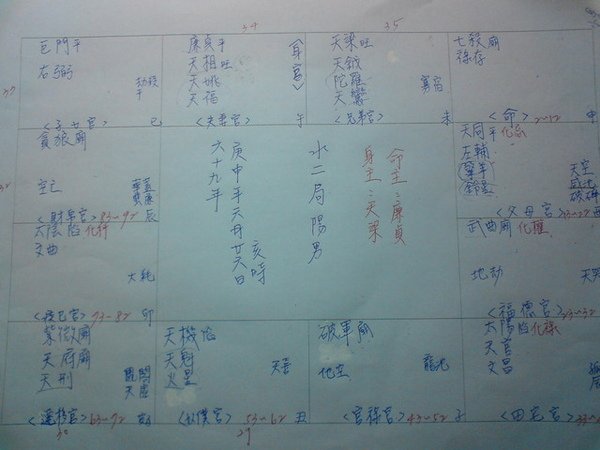 34
35
巨門平
右弼
劫殺
<子女宮>
巳
廉貞平
天相旺
天姚
天福
身宮
<夫妻宮>
午
天梁旺
天鉞
陀羅
寡宿
<兄弟宮>
未
七殺廟
祿存
<命>
2~12
申
貪狼廟
空亡
華蓋
<財帛宮>
83~92
辰
庚申年六月廿六日
亥時
六十九年
水二局陽男
命主:廉貞
身主:天梁
天同平化忌
左輔
天空
咸池
破碎
<父母宮>
13~22
酉
太陰陷化科
文曲
大耗
<疾厄宮>
73~82
卯
武曲廟化權
地劫
天哭
<福德宮>
23~32
紫微廟
天府廟
天刑
<遷移宮>
63~72
寅
30
天機陷
天魁
火星
<奴僕宮>
53~62
丑
29
破軍廟
龍池
<官祿宮>
43~52
子
太陽陷化祿
天官
文昌
<田宅宮>